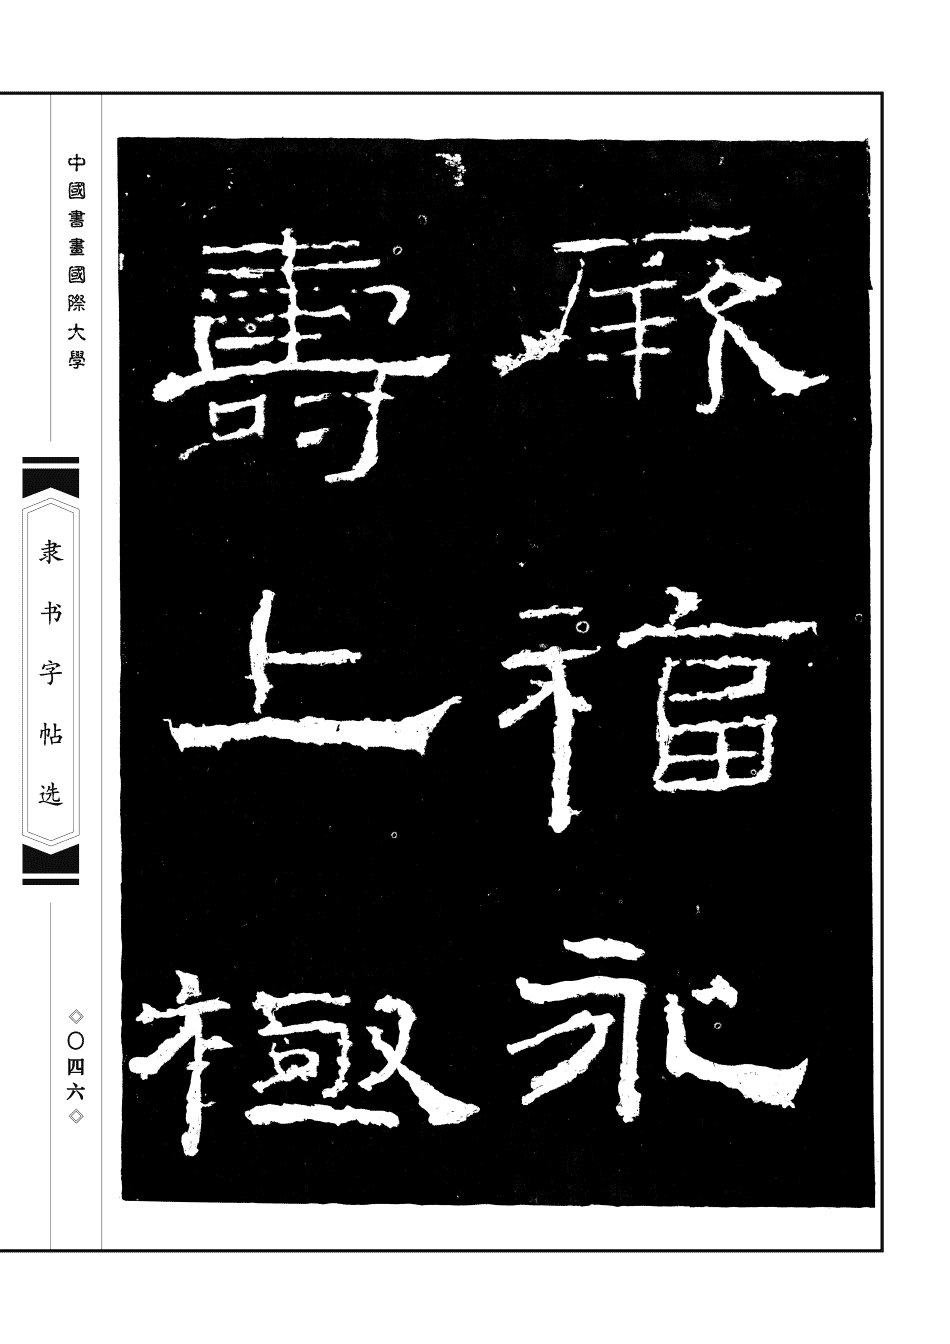 厥福永
壽上極
中國書畫國際大學
隶书字帖选
◇〇四六◇